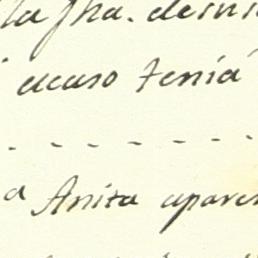 la fha. de
acaso tenía
- - - - - - - -
a Anita apare